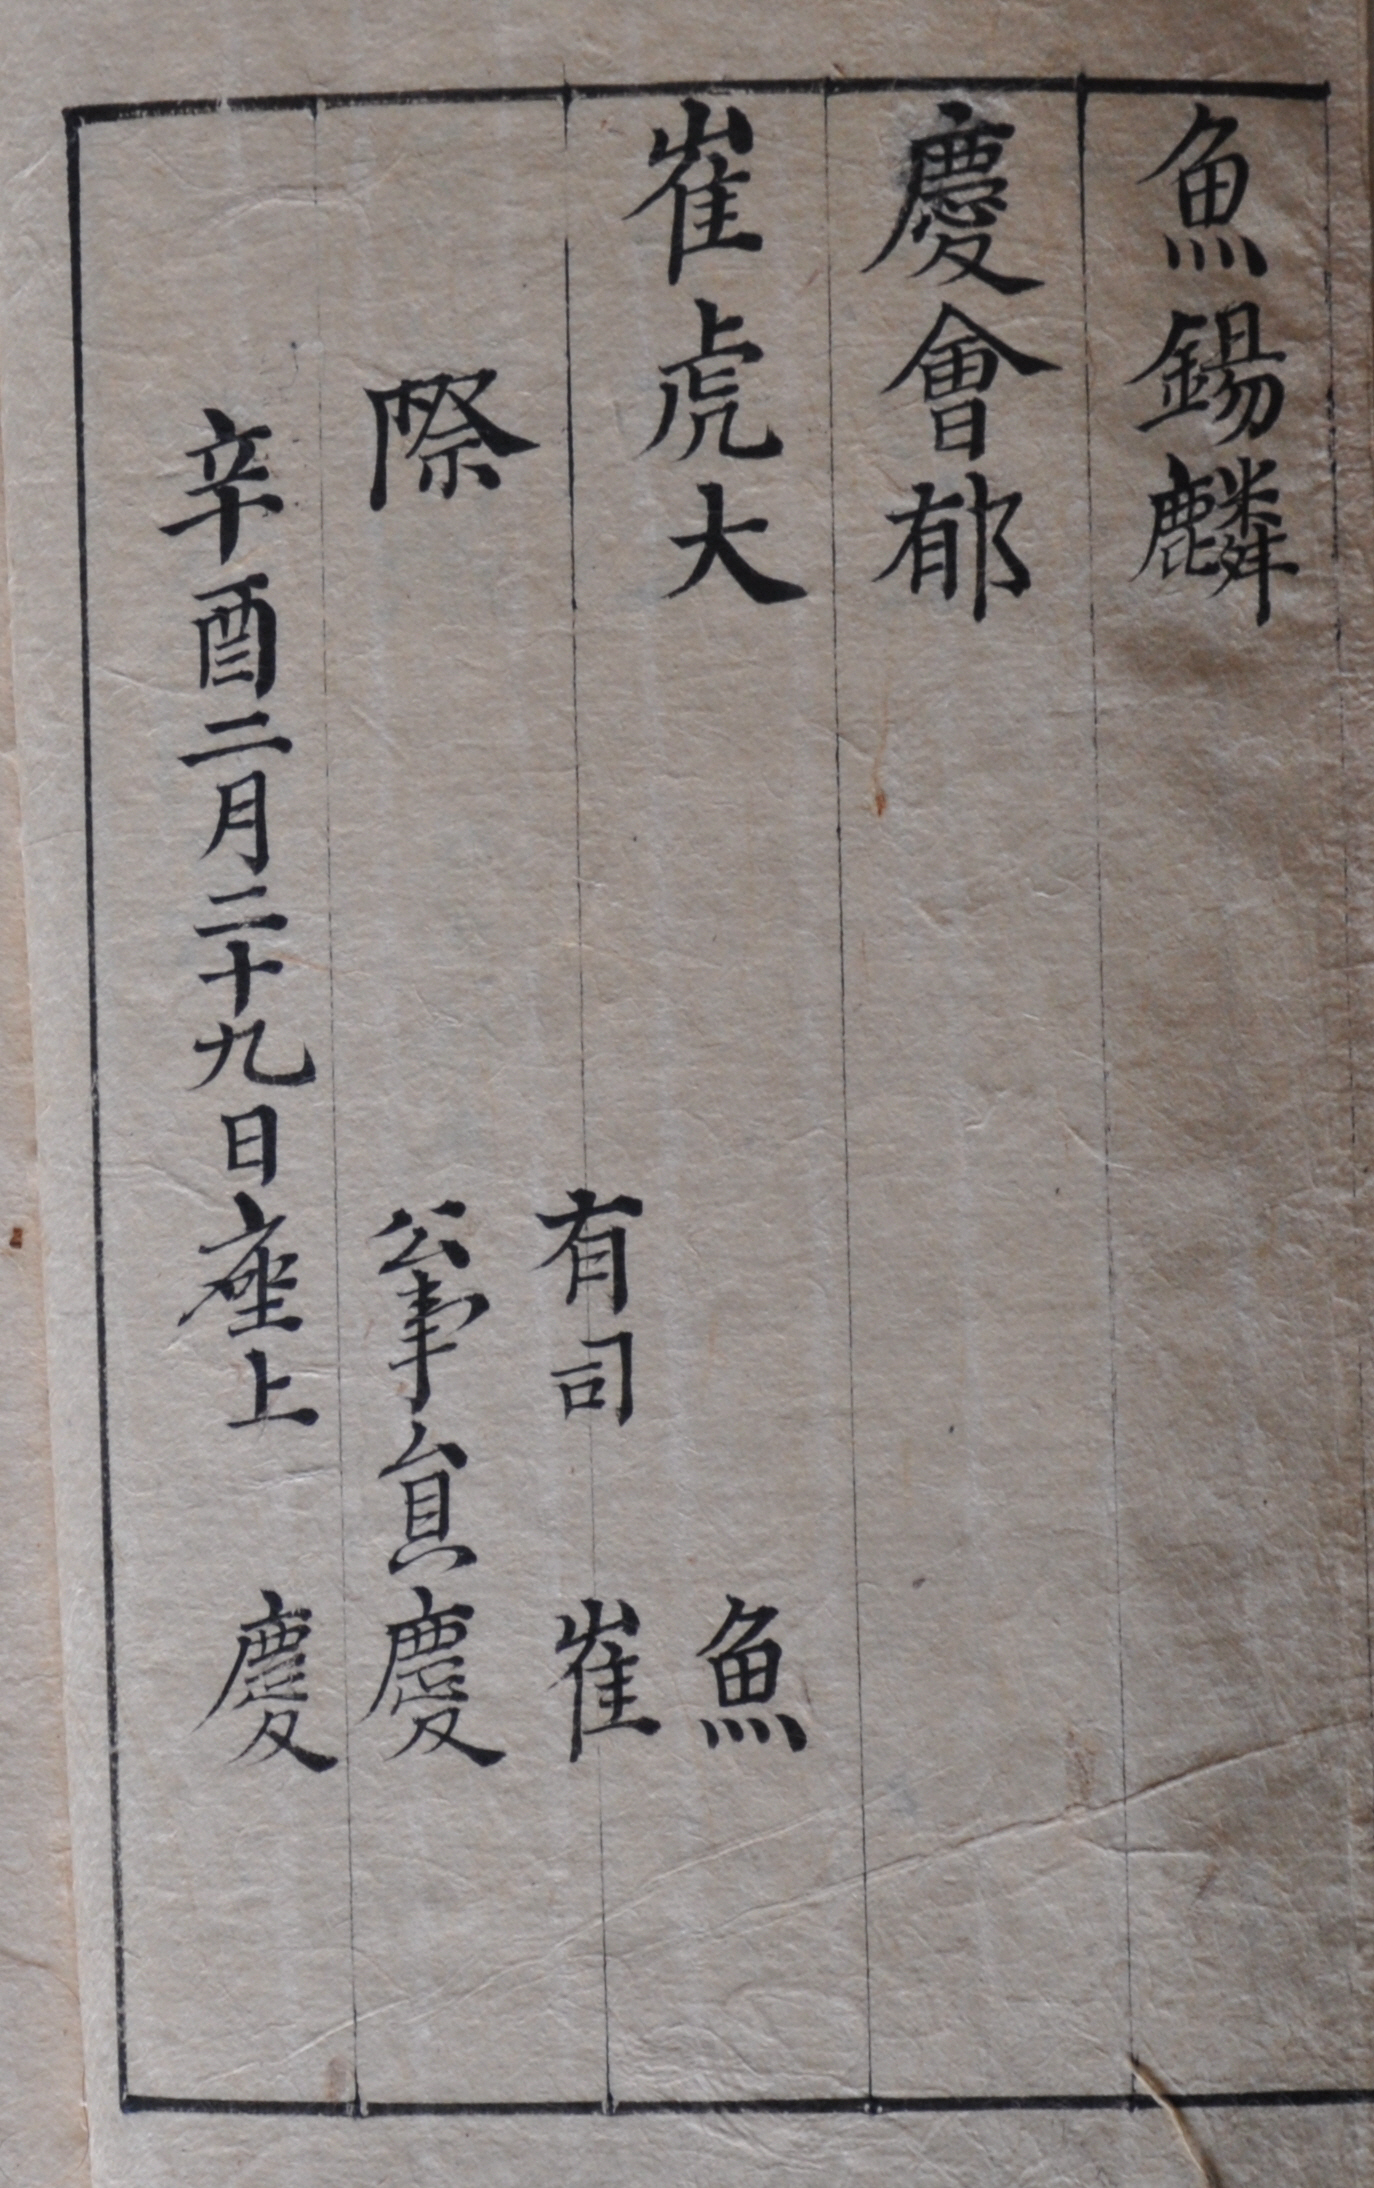 魚錫麟
慶會郁
崔虎大
際
辛酉二月二十九日座上 慶
公事員 慶
有司 崔
魚